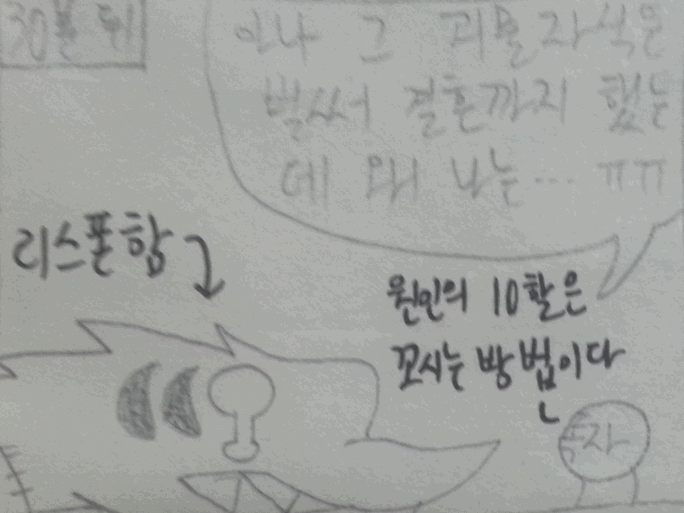 30분 뒤
아나 그 괴물자식은
벌써 결혼까지 했는
데 왜 나는… ㅠㅠ
리스폰함
원인의 10할은
꼬시는 방법이다